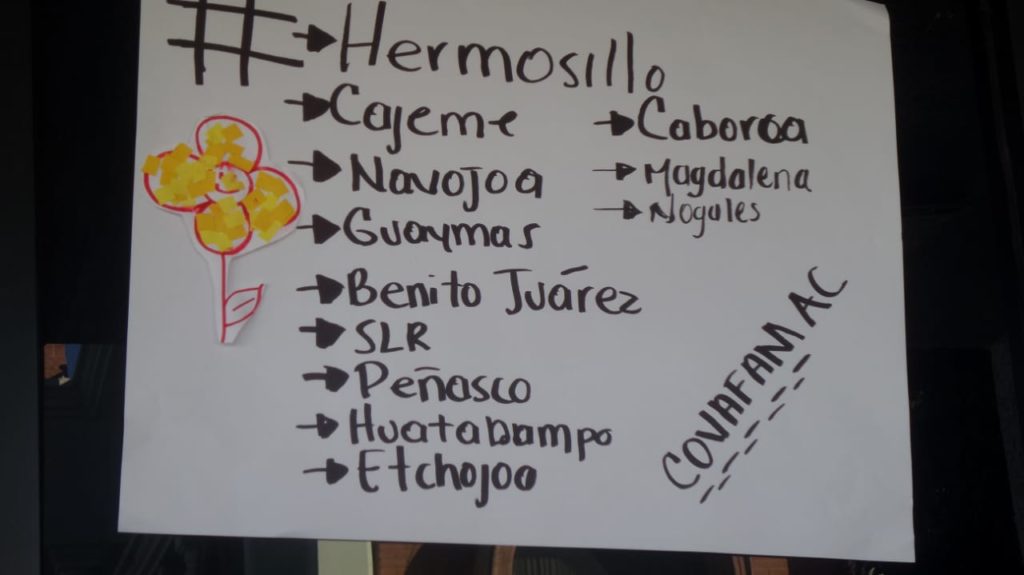 # → Hermosillo
→ Cajeme
→ Navojoa
→ Guaymas
→ Benito Juárez
→ SLR
→ Peñasco
→ Huatabampo
→ Etchojoa
→ Caborca
→ Magdalena
→ Nogales
COVAFAM AC